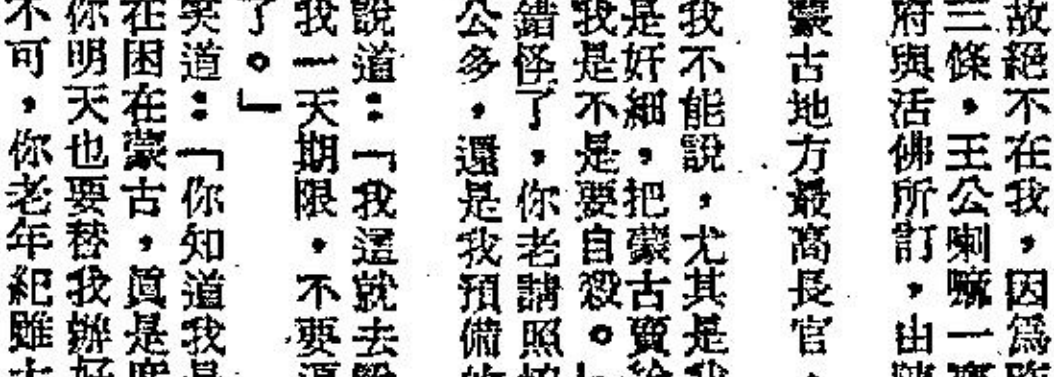 故絕不在我，因爲
三條，王公喇嘛一
府與活佛所訂，由
蒙古地方最高長官，
我不能說，尤其是我
是奸細，把蒙古賣給
我是不是要自殺。」
錯怪了，你老請照
公多，還是我預備
說道：「我這就去
我一天期限，不要
了。」
笑道：「你知道我是
在困在蒙古，眞是
你明天也要替我辦好
不可，你老年紀雖